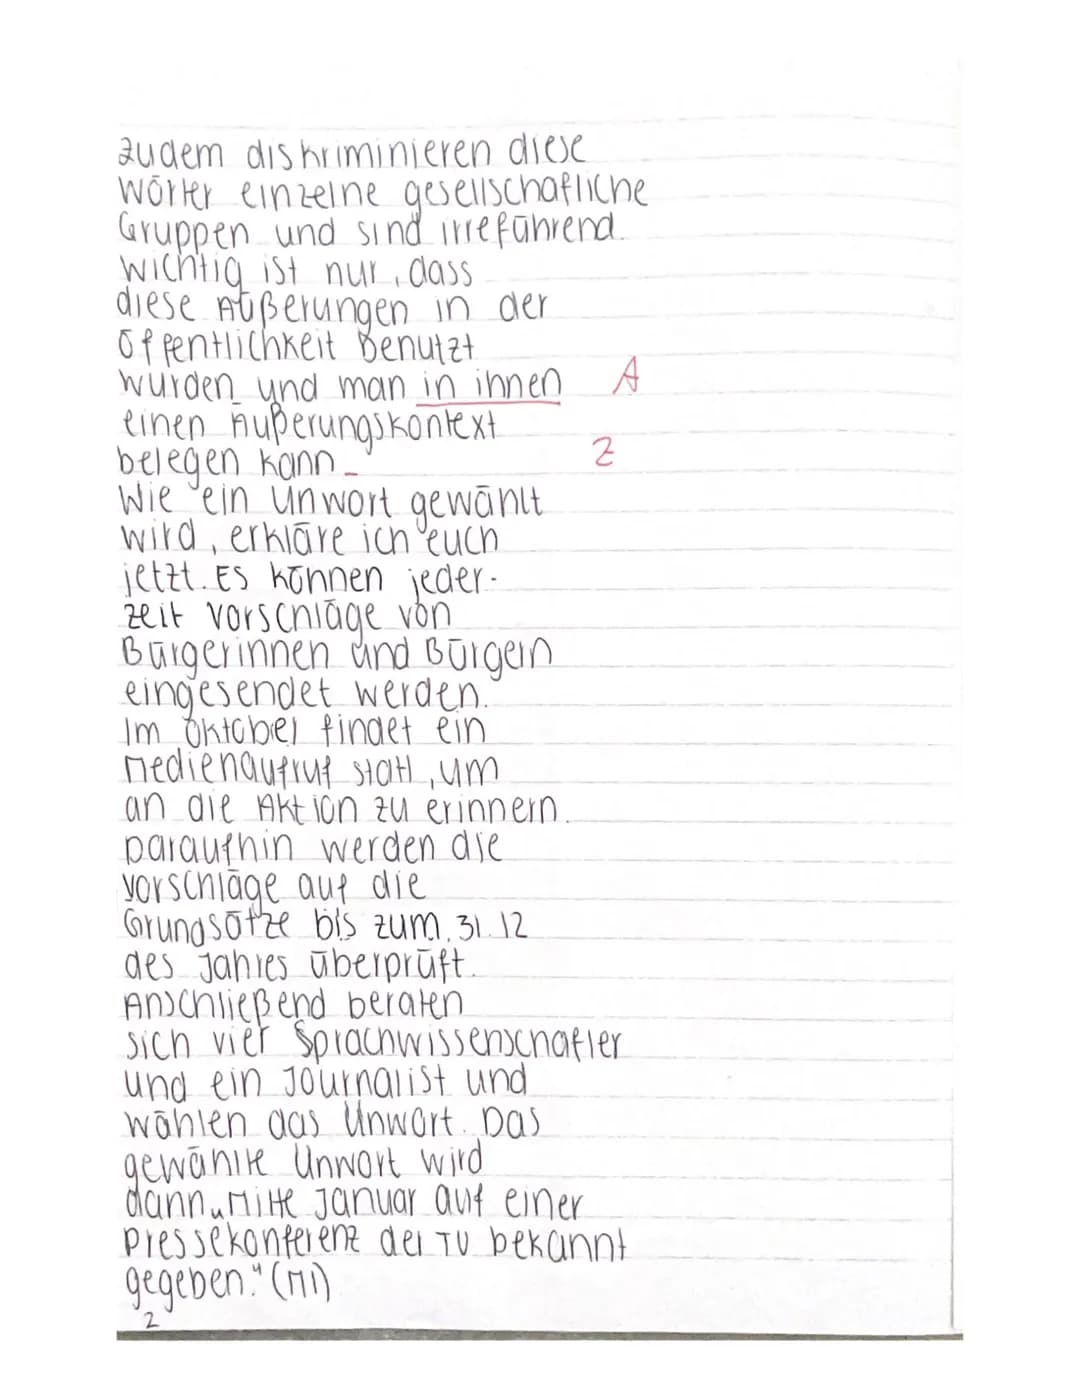 zudem diskriminieren diese
Wörter einzelne gesellschafliche
Gruppen und sind irreführend.
Wichtig ist nur, dass
diese Äußerungen in der
Öffentlichkeit benutzt
wurden und man in ihnen A
einen Äußerungskontext
belegen kann Z
Wie ein Unwort gewählt
wird, erkläre ich euch
jetzt. Es können jeder-
zeit Vorschläge von
Bürgerinnen und Bürgern
eingesendet werden.
Im Oktober findet ein
Medienaufruf statt, um
an die Aktion zu erinnern.
Daraufhin werden die
Vorschläge auf die
Grundsätze bis zum 31.12
des Jahres überprüft.
Anschließend beraten
sich vier Sprachwissenschafler
und ein Journalist und
wählen das Unwort. Das
gewählte Unwort wird
dann Mitte Januar auf einer
Pressekonferenz der TU bekannt
gegeben." (M1)
2